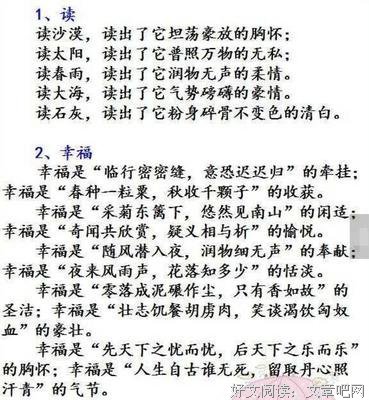 1、读
读沙漠，读出了它坦荡豪放的胸怀；
读太阳，读出了它普照万物的无私；
读春雨，读出了它润物无声的柔情。
读大海，读出了它气势磅礴的豪情。
读石灰，读出了它粉身碎骨不变色的清白。
2、幸福
幸福是“临行密密缝，意恐迟迟归”的牵挂；
幸福是“春种一粒粟，秋收千颗子”的收获。
幸福是“采菊东篱下，悠然见南山”的闲适；
幸福是“奇闻共欣赏，疑义相与析”的愉悦。
幸福是“随风潜入夜，润物细无声”的奉献；
幸福是“夜来风雨声，花落知多少”的恬淡。
幸福是“零落成泥碾作尘，只有香如故”的
圣洁；幸福是“壮志饥餐胡虏肉，笑谈渴饮匈奴
血”的豪壮。
幸福是“先天下之忧而忧，后天下之乐而乐”
的胸怀；幸福是“人生自古谁无死，留取丹心照
汗青”的气节。
好文阅读：文章吧网